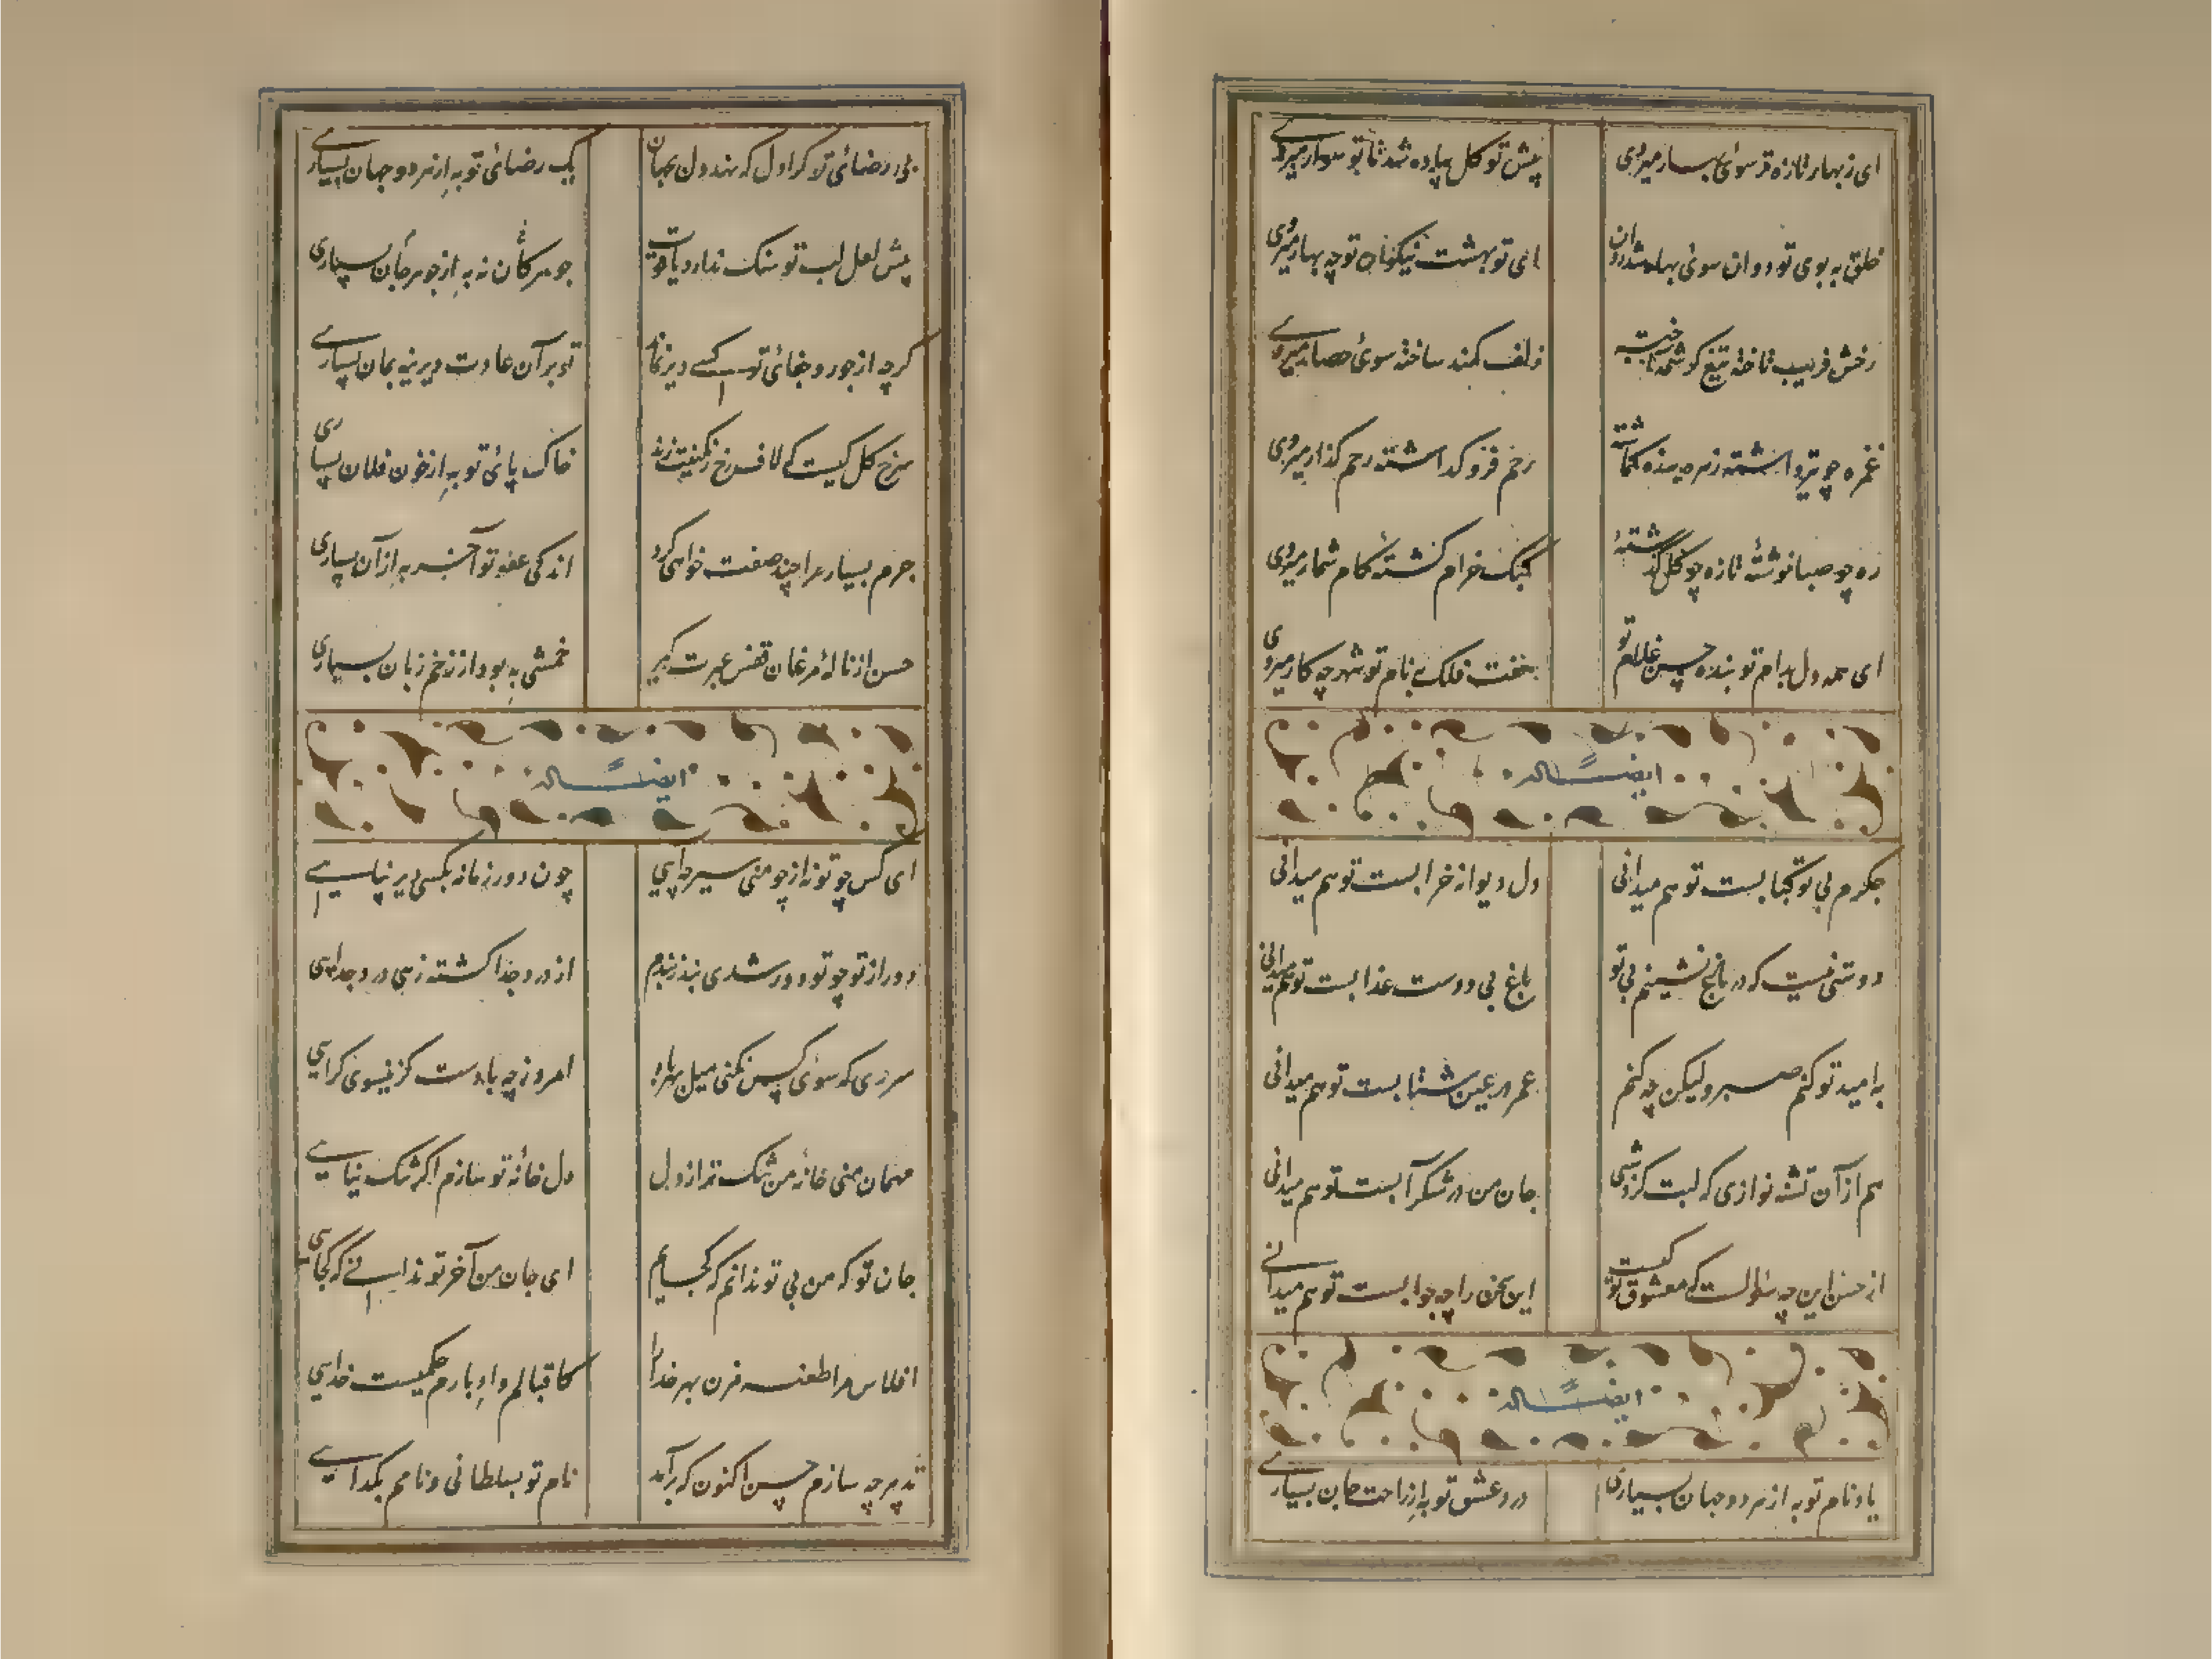 ای ز بهار تازه تر سوئ بهار میروی
پیش تو کل پیاده شد تا تو سوار میروی
خلق به بوی تو دوان سوئ بهار شد روان
ای تو بهشت نیکوان تو چه بهار میروی
رخش فریب تاخته تیغ کرشمه آخته
زلف کمند ساخته سوئ حصار میروی
غمزه چو تیر داشته زمره بنده کاشته
رحم فرو کداشته رحم کذار میروی
ره چو صبا نوشته تازه چو کل کذشته
کبک خرام کشته کام شمار میروی
ای همه دل بدام تو بنده حسن غلام تو
هفت فلک بنام تو شهر چه کار میروی
ایضاً له
جکرم بی تو کبابست تو هم میدانی
دل دیوانه خرابست تو هم میدانی
دوستی نیست که در باغ نشینم بی تو
باغ بی دوست عذابست تو هم میدانی
به امید تو کنم صبر ولیکن چه کنم
عمر در عین شتابست تو هم میدانی
هم از آن تشنه نوازی که لبت کردشبی
جان من در شکر آبست تو هم میدانی
از حسن این چه سئوالست که معشوق تو کیست
این سخن را چه جوابست تو هم میدانی
ایضاً له
یاد نام تو به از هر دو جهان بسیاری
درد عشق تو به از راحت جان بسیاری
بی رضائی تو کرا دل که نهد دل بجهان
یک رضائی تو به از هر دو جهان بسیاری
پیش لعل لب تو سنک ندارد یاقوت
جوهر کان نه به از جوهر جان بسیاری
کرچه از جور و جفائی تو کسی دیر نماند
تو بر آن عادت دیرینه بمان بسیاری
سرخ کل کیست که لاف رخ رنکینت زند
خاک پائی تو به از خون فلان بسیاری
جرم بسیار مرا چند صفت خواهی کرد
اندکی عفو تو آخر به از آن بسیاری
حسن از نالهٔ مرغان قفس عبرت کیر
خمشی به بود از زخم زبان بسیاری
ایضاً له
ای کس چو تو نه از چو منی سیر چرایی
چون دور زمانه بکسی دیر نپایی
دور از تو چو تو دور شدی بند ز بندم
از درد جدا کشته زهی درد جدایی
سروی که سوی کس نکنی میل بهر باد
امروز چه بادست کزینسوی کرایی
مهمان منی خانهٔ من تنک تر از دل
دل خانهٔ تو سازم اکر تنک نیایی
جان تو که من بی تو ندانم که کجایم
ای جان من آخر تو ندانی که کجایی
افلاس مرا طعنه مزن بهر خدا را
کاقبالم و ادبارم حکمیست خدایی
تدبیر چه سازم حسن اکنون که برآمد
نام تو بسلطانی و نامم بکدایی